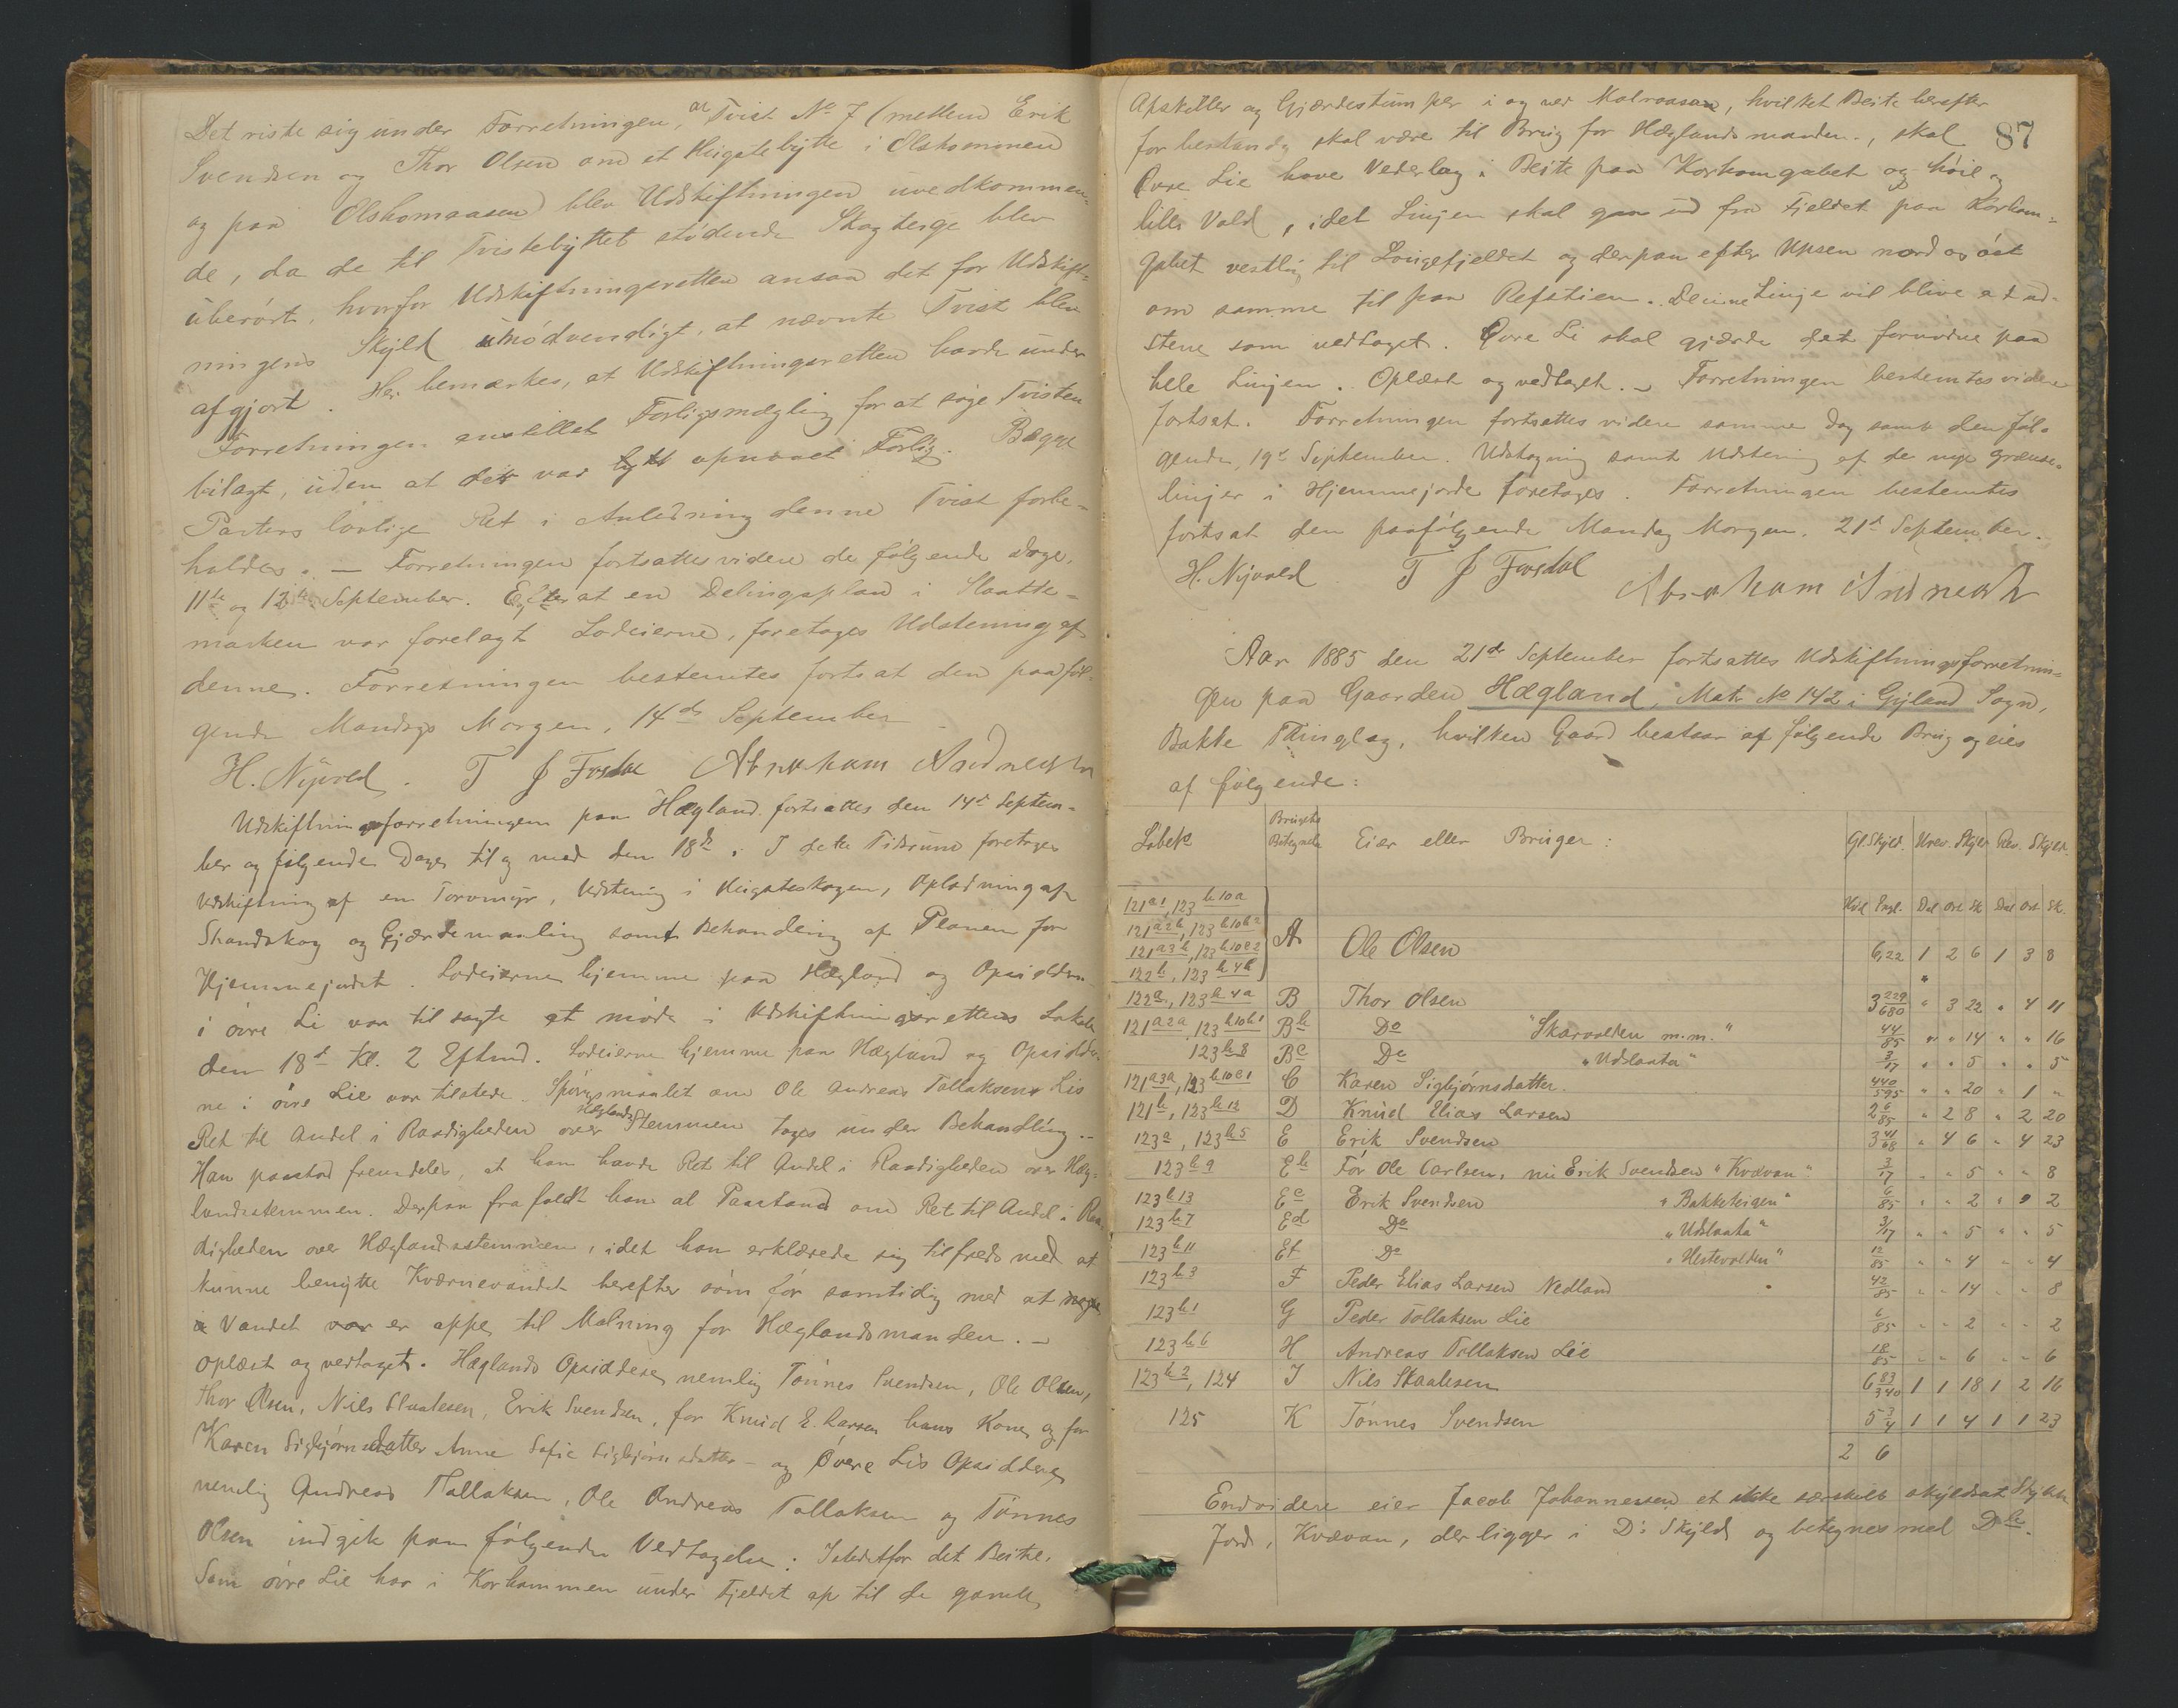 Det viste sig under Forretningen, at Tvist No 7 (mellem Erik
Svendsen og Thor Olsen om et Heigatebytte i Olshommen
og paa Olshomaasen) blev Udskiftningen uvedkommen-
de, da de til Tvistebyttet stødende Skogteige blev
uberørt, hvorfor Udskiftningsretten ansaa det for Udskift-
ningens Skyld unødvendigt, at nævnte Tvist blev
afgjort. Her bemærkes, at Udskiftningsretten havde under
Forretningen anstillet Forligsmægling for at søge Tvisten
bilagt, uden at det var lykt opnaaet Forlig. Begge
Parters lovlige Ret i Anledning denne Tvist forbe-
holdes. — Forretningen fortsattes videre de følgende Dage,
11te og 12te September. Efter at en Delingsplan i Slaatte-
marken var forelagt Lodeierne, foretoges Udstening af
denne. Forretningen bestemtes fortsat den paaføl-
gende Mandags Morgen, 14de September
H. Nyvold. T J Fosdal Abraham Andneson
Udskiftningsforretningen paa Hægland fortsattes den 14de Septem-
ber og følgende Dage til og med den 18de. I dette Tidsrum foretoges
Udskiftning af en Torvmyr, Udstening i Heigateskogen, Oplodning af
Strandskog og Gjærdemaaling samt Behandling af Planen for
Hjemmejordet. Lodeierne hjemme paa Hægland og Opsidderne
i øvre Li var tilsagte at møde i Udskiftningsrettens Lokale
den 18de Kl. 2 Eftmd. Lodeierne hjemme paa Hægland og Opsidder-
ne i øvre Lie var tilstede. Spørgsmaalet om Ole Andreas Tollaksens Lis
Ret til Andel i Raadigheden over Hæglands Stemmen toges under Behandling.—
Han paastod fremdeles, at han havde Ret til Andel i Raadigheden over Hæg-
landsstemmen. Derpaa frafaldt han al Paastand om Ret til Andel i Raa-
digheden over Hæglandsstemmen, idet han erklærede sig tilfreds med at
kunne benytte Kværnevandet herefter som før samtidig med at
Vandet var er oppe til Malning for Hæglandsmanden. —
Oplæst og vedtaget. Hæglands Opsiddere, nemlig Tønnes Svendsen, Ole Olsen,
Thor Olsen, Nils Staalesen, Erik Svendsen, for Knud E. Larsen hans Kone, og for
Karen Sigbjørnsdatter Anne Sofie Sigbjørnsdatter — og Øvere Lis Opsiddere,
nemlig Andreas Tollaksen, Ole Andreas Tollaksen og Tønnes
Olsen indgik paa følgende Vedtagelse: Istedetfor det Beite,
Som øvre Lie har i Korhommen under Fjeldet op til de gamle
87
Opskiller og Gjærdestumper i og ved Malraasan, hvilket Beite herefter
for bestandig skal være til Brug for Hæglandsmanden, skal
Øvre Lie have Vederlag i Beite paa Korhomgabet og høie og
lille Vold, idet Linjen skal gaa ud fra Fjeldet paa Korhom-
gabet vestlig til Longefjeldet og derpaa efter Upsen nord og øst
om samme til paa Refstien. Denne Linje vil blive at ud-
stene som vedtaget. Øvre Li skal gjærde det fornødne paa
hele Linjen. Oplæst og vedtaget. — Forretningen bestemtes videre
fortsat. Forretningen fortsattes videre samme Dag samt den føl-
gende, 19de September. Udstagning samt Udstening af de nye Grænse-
linjer i Hjemmejorde foretoges. Forretningen bestemtes
fortsat den paafølgende Mandag Morgen, 21de September.
H. Nyvold T J Fosdal Abraham Andneson
Aar 1885 den 21de September fortsattes Udskiftningsforretnin-
gen paa Gaarden Hægland, Matr. No 142 i Gyland Sogn,
Bakke Thinglag, hvilken Gaard bestaar af følgende Brug og eies
af følgende:
Løbe No Brugets Betegnelse Eier eller Bruger: Gl. Skyld. Urev. Skyld Rev. Skyld.
Hud Engl. Dal Ort Sk Dal Ort Sk.
121a1, 123b10a
121a2b, 123b10b2
121a3b, 123b10c2 A Ole Olsen 6,22 1 2 6 1 3 8
122b, 123b4b "
122a, 123b4a B Thor Olsen 3 229/680 " 3 22 " 4 11
121a2a, 123b10b1 Bb Do "Skarvolden m.m." 44/85 " " 14 " " 16
123b8 Bc Do "Udslaata" 3/17 " " 5 " " 5
121a3a, 123b10c1 C Karen Sigbjørnsdatter. 440/595 " " 20 " 1 "
121b, 123b12 D Knud Elias Larsen 2 6/85 " 2 8 " 2 20
123a, 123b5 E Erik Svendsen 3 41/68 " 4 6 " 4 23
123b9 Eb Før Ole Carlsen, nu Erik Svendsen "Kvævan" 3/17 " " 5 " " 8
123b13 Ec Erik Svendsen "Bakketeigen" 6/85 " " 2 " " 2
123b7 Ed Do "Udslaata" 3/17 " " 5 " " 5
123b11 Ef Do "Hestevolden" 12/85 " " 4 " " 4
123b3 F Peder Elias Larsen Nedland 42/85 " " 14 " " 8
123b1 G Peder Tollaksen Lie 6/85 " " 2 " " 2
123b6 H Andreas Tollaksen Lie 18/85 " " 6 " " 6
123b2, 124 I Nils Staalesen 6 83/340 1 1 18 1 2 16
125 K Tønnes Svendsen 5 3/4 1 1 4 1 1 23
2 6
Endvidere eier Jacob Johannessen et ikke særskilt skyldsat Stykke
Jord, Kvævan, der ligger i D's Skyld og betegnes med Db.